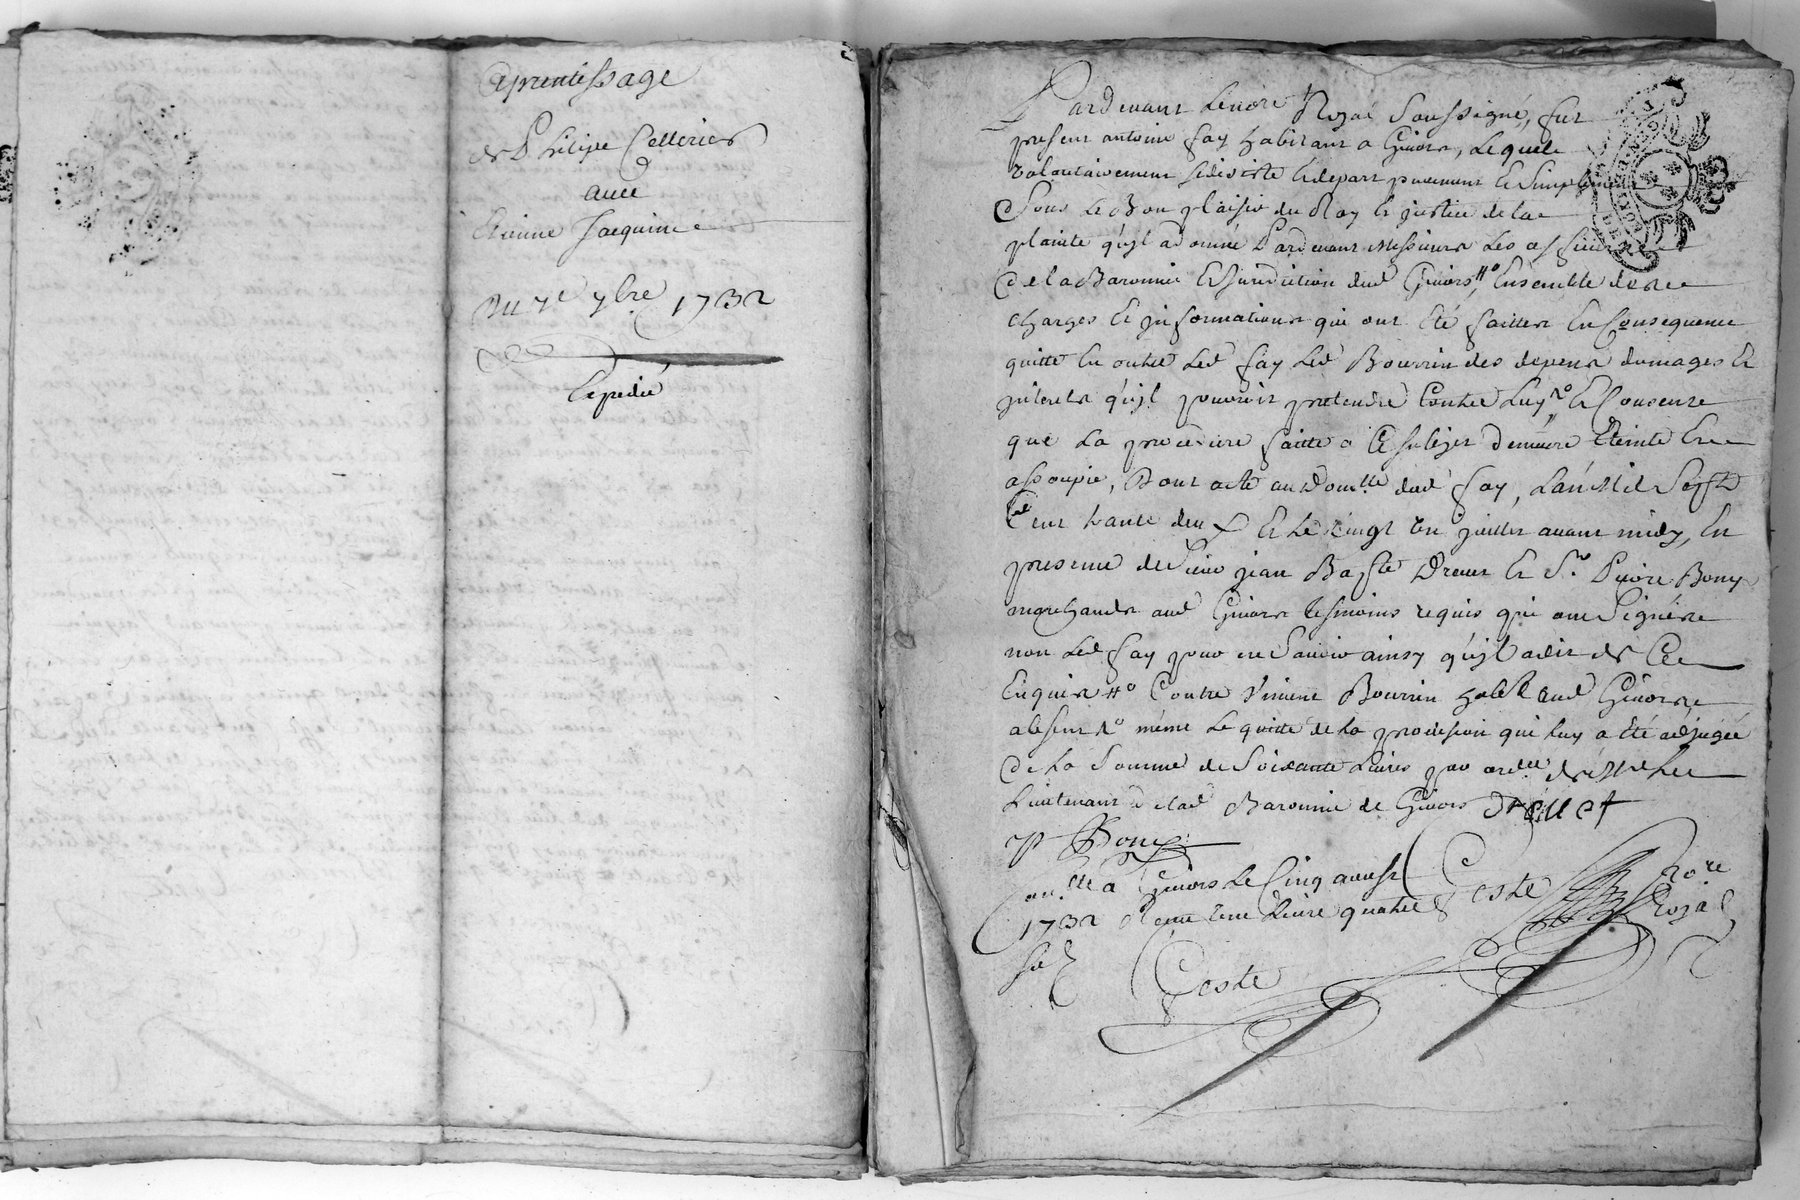 aprentissage
de Philipe Cellerier
avec
Etienne Jacquin
Du 7e 7bre 1732
Expedié
Pardevant Le notre Royal Soussigné, fut
present antoine fay habitant a Givors, Lequel
volontairement sedesiste et depart purement et simplement
Sous Le Bon plaisir du Roy et justice de la
plainte qu'jl a donné Pardevant Messieurs Les officiers
de la Baronnie et jurisdiction dud Givors, Ensemble des
charges et jnformations qui ont été faittes En Consequence
quitte En outre Led fay Led Bourrin des depens domages et
jnterets qu'jl pourroit pretendre Contre Luy, et Consent
que La procedure faitte a Ce sujet demeure Eteinte Et
assoupie, Dont acte au domlle dud fay, L'an Mil Sept
Cent trante deux Et Le vingt un juillet avant midy, En
presence de Sieur jean Bapte Drevet et Sr. Pierre Bony
marchands aud Givors tesmoins requis qui ont Signé
non Led fay pour ne Scavoir ainsy qu'jl a dit de Ce
Enquis Contre Vincent Bourrin habt aud Givors
absent même Le quitte de la provision qui luy a été adjugée
de La Somme de Soixante Livres par ordce de
Lieutenant de lad Baronnie de Givors Drevet
P Bony
Conllé a Givors Le Cinq aoust Coste Nore
1732 Receu une Livre quatre Royal
sols
Coste